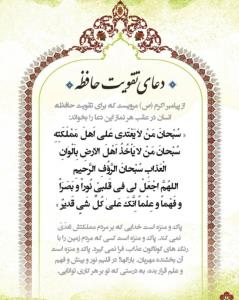 دعای تقویت حافظه
از پیامبر اکرم (ص) مرویست که برای تقویت حافظه
انسان در عقب هر نماز این دعا را بخواند:
« سُبْحَانَ مَنْ لَا يَعْتَدى عَلى اَهْلِ مَمْلَكَتِهِ
سُبْحَانَ مَنْ لَا يَأخُذُ اَهْلَ الاَرْضِ بِاَلْوانِ
الْعَذابِ سُبْحَانَ الرَّؤُفِ الرَّحيمِ
اَللّهُمَّ اجْعَلْ لى فى قَلْبى نُوراً وَ بَصَراً
وَ فَهْماً وَ عِلْماً اِنَّكَ عَلى كُلِّ شَىءٍ قَديرٌ »
پاک و منزه است خدایی که بر مردم مملکتش تعدی
نمی کند. پاک و منزه است کسی که مردم زمین را با
رنگ های گوناگون عذاب فرا نمی گیرد. پاک و منزه است
آن بخشنده مهربان. بارالها! در قلبم نور و بینش و فهم
و علم قرار بده، به درستی که تو بر هر کاری توانایی.